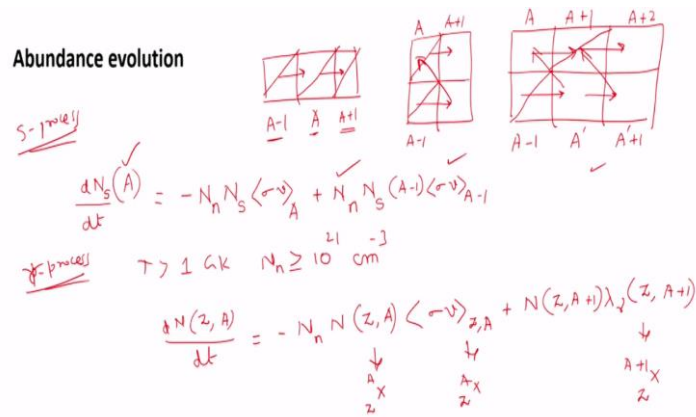 A A+1 A A+1 A+2
Abundance evolution
A-1 A A+1 A-1 A-1 A' A'+1
S-process
dN_s(A)/dt = - N_n N_s <σv>_A + N_n N_s (A-1) <σv>_A-1
-process T > 1 GK N_n ≥ 10^21 cm^-3
dN(Z,A)/dt = - N_n N(Z,A) <σv>_Z,A + N(Z,A+1) λ_γ (Z,A+1)
A X Z A X Z A+1 X Z